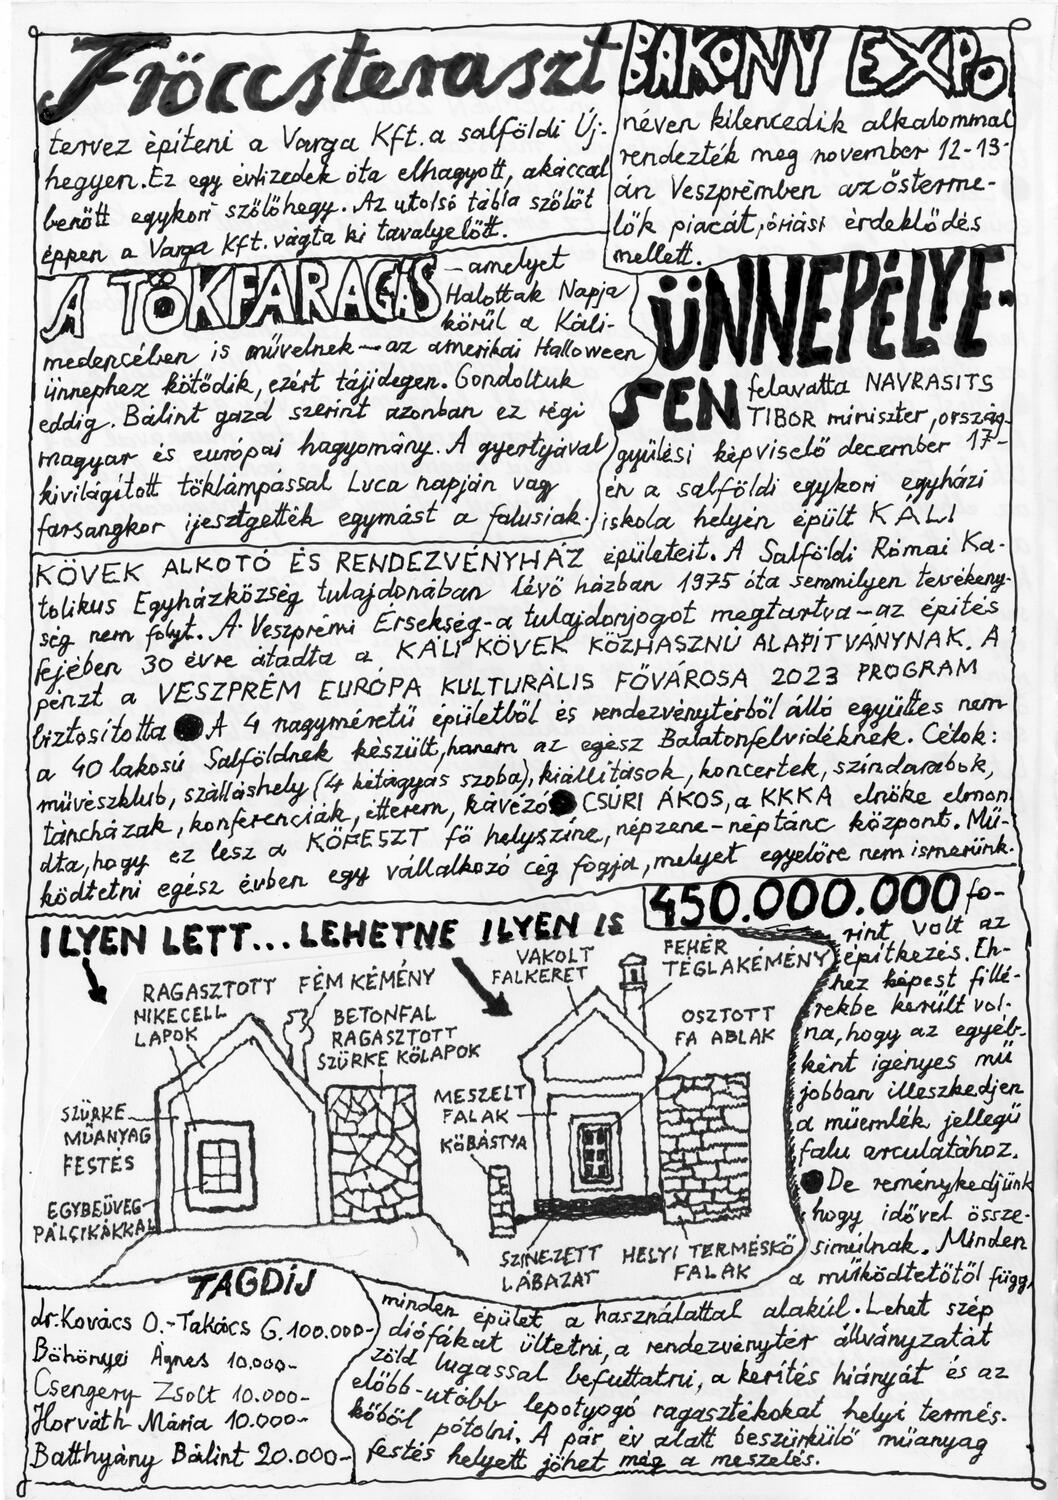 Fröccsteraszt
tervez építeni a Varga Kft. a salföldi Új-
hegyen. Ez egy évtizedek óta elhagyott, akáccal
benőtt egykori szőlőhegy. Az utolsó tábla szőlőt
éppen a Varga Kft. vágta ki tavalyelőtt.
BAKONY EXPO
néven kilencedik alkalommal
rendezték meg november 12-13-
án Veszprémben az őstерme-
lők piacát, óriási érdeklődés
mellett.
A TÖKFARAGÁS
– amelyet
Halottak Napja
körül a Káli-
medencében is művelnek – az amerikai Halloween
ünnephez kötődik, ezért tájidegen. Gondoltuk
eddig. Bálint gazd szerint azonban ez régi
magyar és európai hagyomány. A gyertyával
kivilágított töklámpással Luca napján vagy
farsangkor ijesztgették egymást a falusiak.
ÜNNEPÉLYE-
SEN
felavatta NAVRASITS
TIBOR miniszter, ország-
gyűlési képviselő december 17-
én a salföldi egykori egyházi
iskola helyén épült KÁLI
KÖVEK ALKOTÓ ÉS RENDEZVÉNYHÁZ épületeit. A Salföldi Római Ka-
tolikus Egyházközség tulajdonában lévő házban 1975 óta semmilyen tevékeny-
ség nem folyt. A Veszprémi Érsekség - a tulajdonjogot megtartva - az építés
fejében 30 évre átadta a KÁLI KÖVEK KÖZHASZNÚ ALAPÍTVÁNYNAK. A
pénzt a VESZPRÉM EURÓPA KULTURÁLIS FŐVÁROSA 2023 PROGRAM
biztosította ● A 4 nagyméretű épületből és rendezvénytérből álló együttes nem
a 40 lakosú Salföldnek készült, hanem az egész Balatonfelvidéknek. Célok:
művészklub, szálláshely (4 kétágyas szoba), kiállítások, koncertek, színdarabok,
táncházak, konferenciák, étterem, kávézó ● CSÚRI ÁKOS, a KKKA elnöke elmon-
dta, hogy ez lesz a KÖFESZT fő helyszíne, népzene-néptánc központ. Mű-
ködtetni egész évben egy vállalkozó cég fogja, melyet egyelőre nem ismerünk.
ILYEN LETT... LEHETNE ILYEN IS
RAGASZTOTT
NIKECELL
LAPOK
FÉM KÉMÉNY
BETONFAL
RAGASZTOTT
SZÜRKE KŐLAPOK
SZÜRKE
MŰANYAG
FESTÉS
EGYBEÜVEG
PÁLCIKÁKKAL
VAKOLT
FALKERET
FEHÉR
TÉGLAKÉMÉNY
OSZTOTT
FA ABLAK
MESZELT
FALAK
KŐBÁSTYA
SZINEZETT
LÁBAZAT
HELYI TERMÉSKŐ
FALAK
450.000.000 fo-
rint volt az
építkezés. Eh-
hez képest fillé-
rekbe került vol-
na, hogy az egyéb-
ként igényes mű
jobban illeszkedjen
a műemlék jellegű
falu arculatához.
● De reménykedjünk
hogy idővel össze-
simulnak. Minden
a működtetőtől függ,
minden épület a használattal alakul. Lehet szép
diófákat ültetni, a rendezvénytér állványzatát
zöld lugassal befuttatni, a kerítés hiányát és az
előbb-utóbb lepotyogó ragasztékokat helyi termés-
kőből pótolni. A pár év alatt beszürkülő műanyag
festés helyett jöhet még a meszelés.
TAGDÍJ
dr. Kovács O. - Takács G. 100.000-
Böhönyei Ágnes 10.000-
Csengery Zsolt 10.000-
Horváth Mária 10.000-
Batthyány Bálint 20.000-